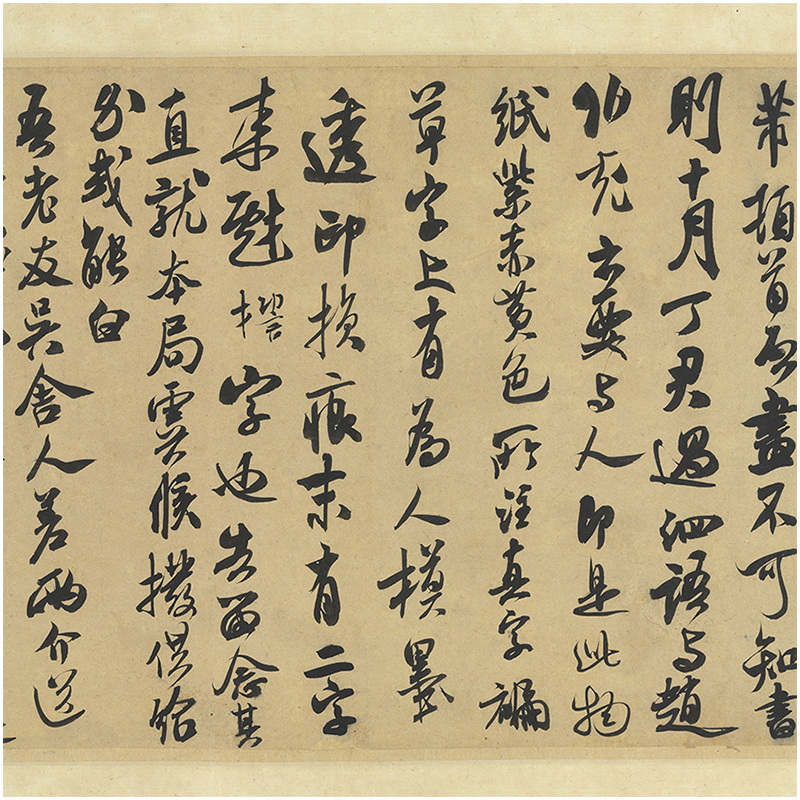 芾頓首啟畫不可知書
則十月丁君過泗語與趙
伯充云要與人即是此物
紙紫赤黃色所注真字褊
草字上有為人模墨
透印損痕末有二字
来戲字也告留念其
直就本局雲只候撥供給
分或能白
吾老友吳舍人差兩介送